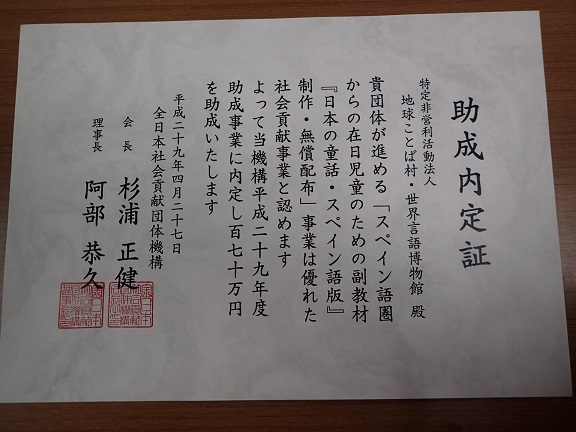 助成内定証
特定非営利活動法人
地球ことば村・世界言語博物館 殿
貴団体が進める「スペイン語圏
からの在日児童のための副教材
『日本の童話・スペイン語版』
制作・無償配布」事業は優れた
社会貢献事業と認めます
よって当機構平成二十九年度
助成事業に内定し百七十万円
を助成いたします
平成二十九年四月二十七日
全日本社会貢献団体機構
会長 杉浦 正健
理事長 阿部 恭久